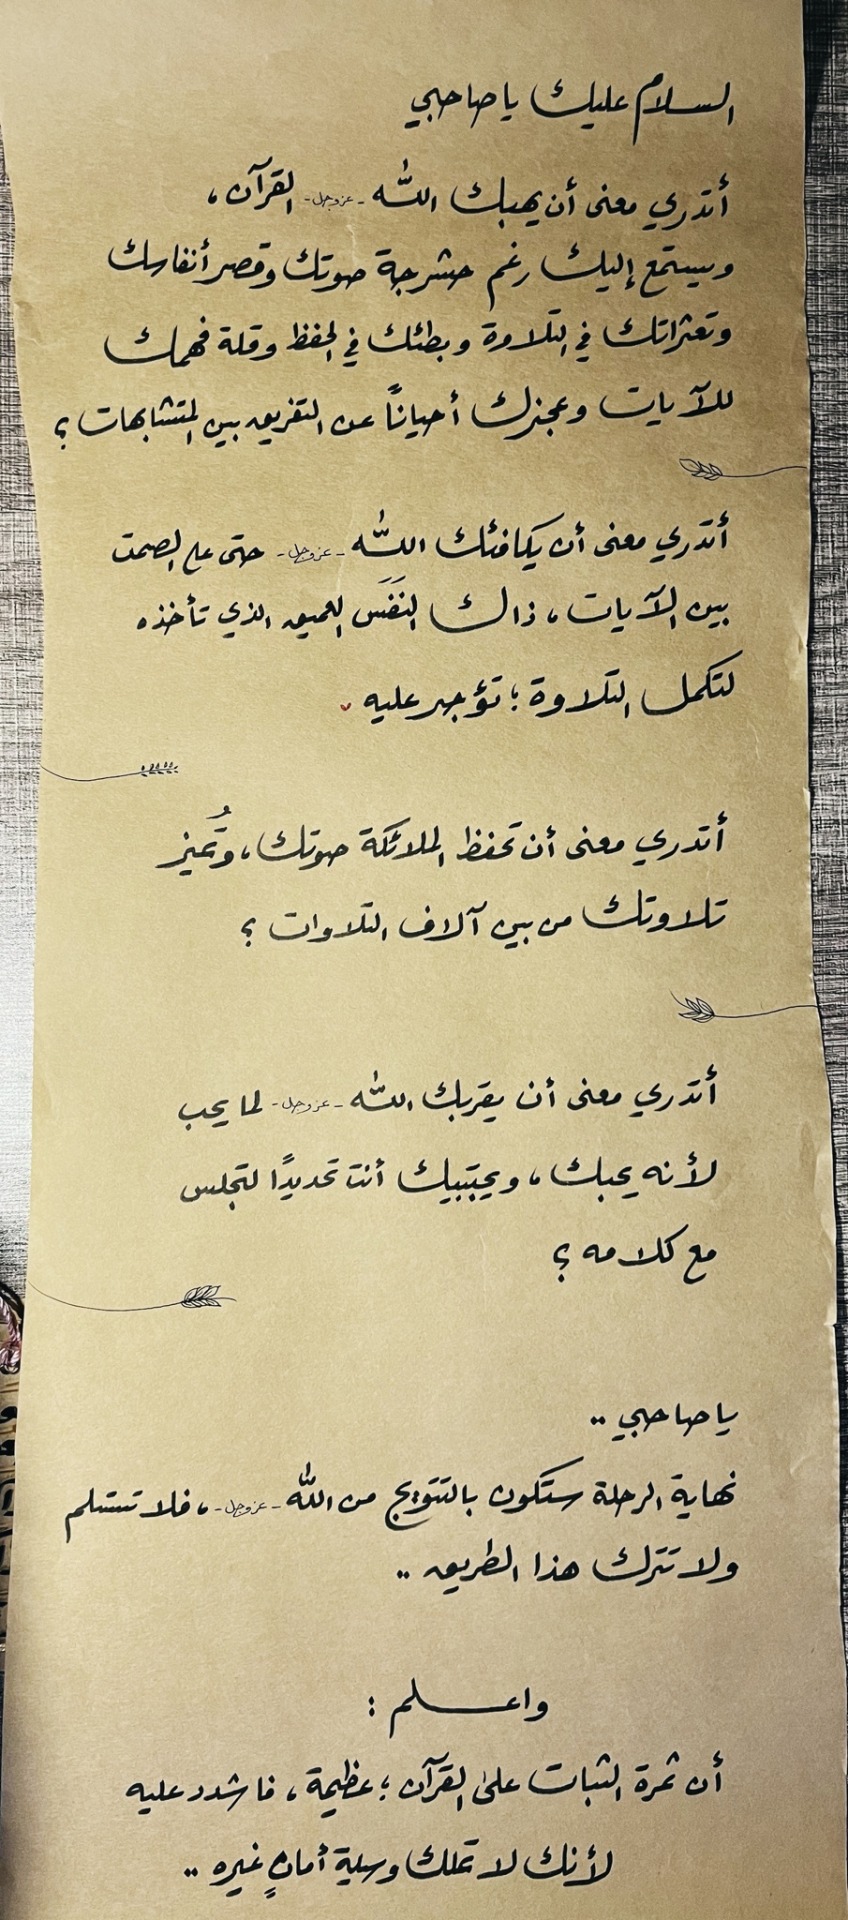 السلام عليك يا صاحبي
أتدري معنى أن يهبك الله -عزوجل- القرآن،
ويستمع إليك رغم حشرجة صوتك وقصر أنفاسك
وتعثراتك في التلاوة وبطئك في الحفظ وقلة فهمك
للآيات وعجزك أحياناً عن التفريق بين المتشابهات؟
أتدري معنى أن يكافئك الله -عزوجل- حتى على الصمت
بين الآيات، ذاك النَفَس العميق الذي تأخذه
لتكمل التلاوة؛ تؤجر عليه
أتدري معنى أن تحفظ الملائكة صوتك، وتُميز
تلاوتك من بين آلاف التلاوات؟
أتدري معنى أن يقربك الله -عزوجل- لما يحب
لأنه يحبك، ويجتبيك أنت تحديدًا لتجلس
مع كلامه؟
يا صاحبي ..
نهاية الرحلة ستكون بالتتويج من الله -عزوجل-، فلا تستسلم
ولا تترك هذا الطريق ..
واعـــلم :
أن ثمرة الثبات على القرآن؛ عظيمة، فاشدد عليه
لأنك لا تملك وسيلة أمانٍ غيره ..